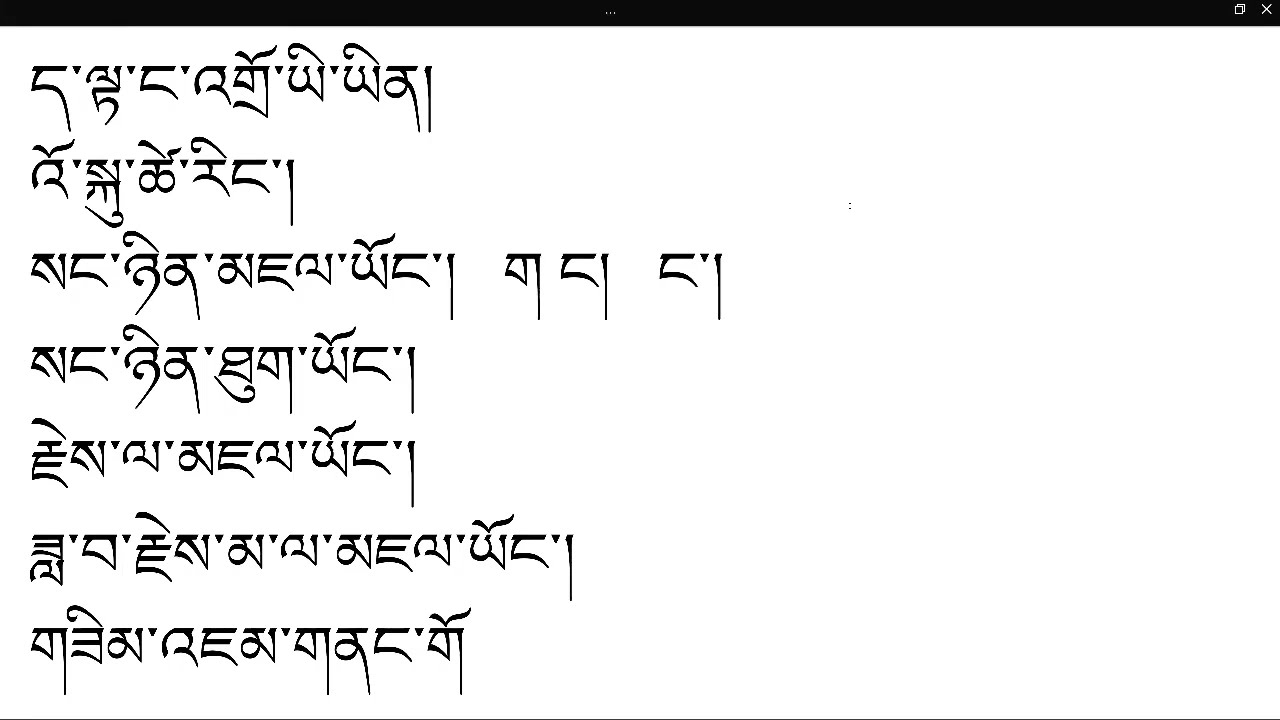 ད་ལྟ་ང་འགྲོ་ཡི་ཡིན།
འོ་སྐུ་ཚེ་རིང་།
སང་ཉིན་མཇལ་ཡོང་། ག ང། ང་།
སང་ཉིན་ཐུག་ཡོང་།
རྗེས་ལ་མཇལ་ཡོང་།
ཟླ་བ་རྗེས་མ་ལ་མཇལ་ཡོང་།
གཟིམ་འཇམ་གནང་གོ